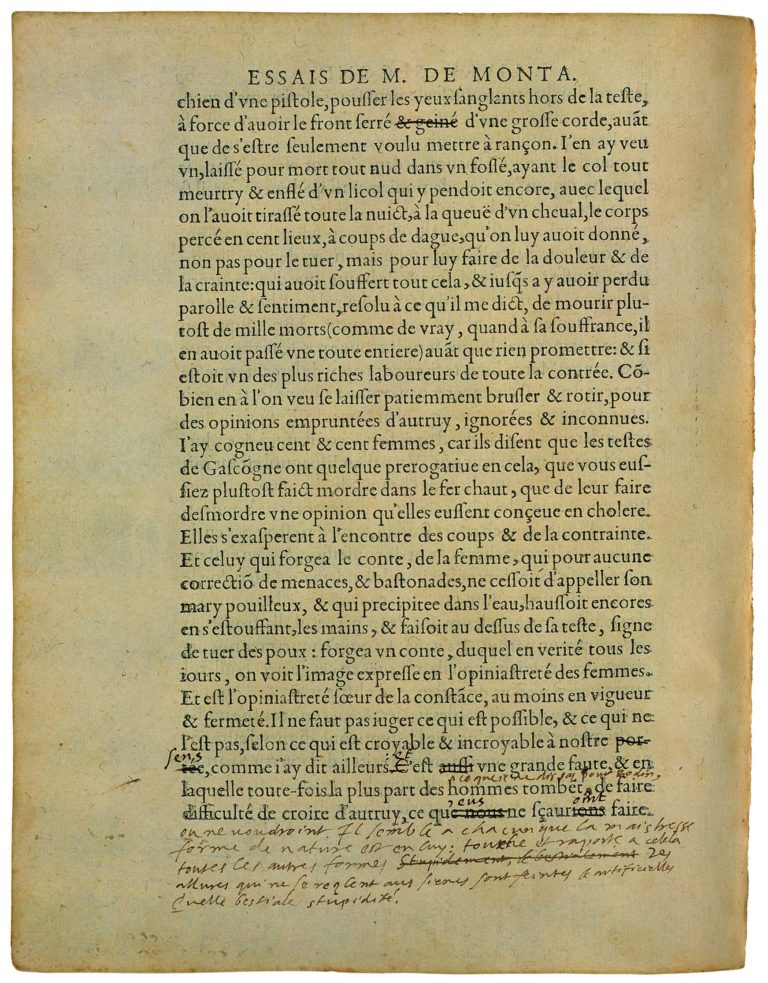 ESSAIS DE M. DE MONTA.
chien d'vne pistole, pousser les yeux sanglants hors de la teste,
à force d'auoir le front serré & geiné d'vne grosse corde, auāt
que de s'estre seulement voulu mettre à rançon. I'en ay veu
vn, laissé pour mort tout nud dans vn fossé, ayant le col tout
meurtry & enflé d'vn licol qui y pendoit encore, auec lequel
on l'auoit tirassé toute la nuict, à la queuë d'vn cheual, le corps
percé en cent lieux, à coups de dague, qu'on luy auoit donné,
non pas pour le tuer, mais pour luy faire de la douleur & de
la crainte: qui auoit souffert tout cela, & iusq̃s a y auoir perdu
parolle & sentiment, resolu à ce qu'il me dict, de mourir plu-
tost de mille morts (comme de vray, quand à sa souffrance, il
en auoit passé vne toute entiere) auāt que rien promettre: & si
estoit vn des plus riches laboureurs de toute la contrée. Cō-
bien en à l'on veu se laisser patiemment brusler & rotir, pour
des opinions empruntées d'autruy, ignorées & inconnues.
I'ay cogneu cent & cent femmes, car ils disent que les testes
de Gascōgne ont quelque prerogatiue en cela, que vous eus-
siez plustost faict mordre dans le fer chaut, que de leur faire
desmordre vne opinion qu'elles eussent conçeue en cholere.
Elles s'exasperent à l'encontre des coups & de la contrainte.
Et celuy qui forgea le conte, de la femme, qui pour aucune
correctiō de menaces, & bastonades, ne cessoit d'appeller son
mary pouilleux, & qui precipitee dans l'eau, haussoit encores
en s'estouffant, les mains, & faisoit au dessus de sa teste, signe
de tuer des poux: forgea vn conte, duquel en verité tous les
iours, on voit l'image expresse en l'opiniastreté des femmes.
Et est l'opiniastreté sœur de la constāce, au moins en vigueur
& fermeté. Il ne faut pas iuger ce qui est possible, & ce qui ne
l'est pas, selon ce qui est croyable & incroyable à nostre por-
sens
tée, comme i'ay dit ailleurs. C'est aussi vne grande faute, & en
laquelle toute-fois la plus part des hommes tombēt, de faire
difficulté de croire d'autruy, ce que nous ne sçaurions faire
ou ne voudroint. Il semble a chacun que la maistresse
forme de nature est en luy: touche et raporte a cella
toutes les autres formes Stupidement, & bestialement Les
allures qui ne se reglent aus sienes sont feintes & artificielles
Quelle bestiale stupidité!